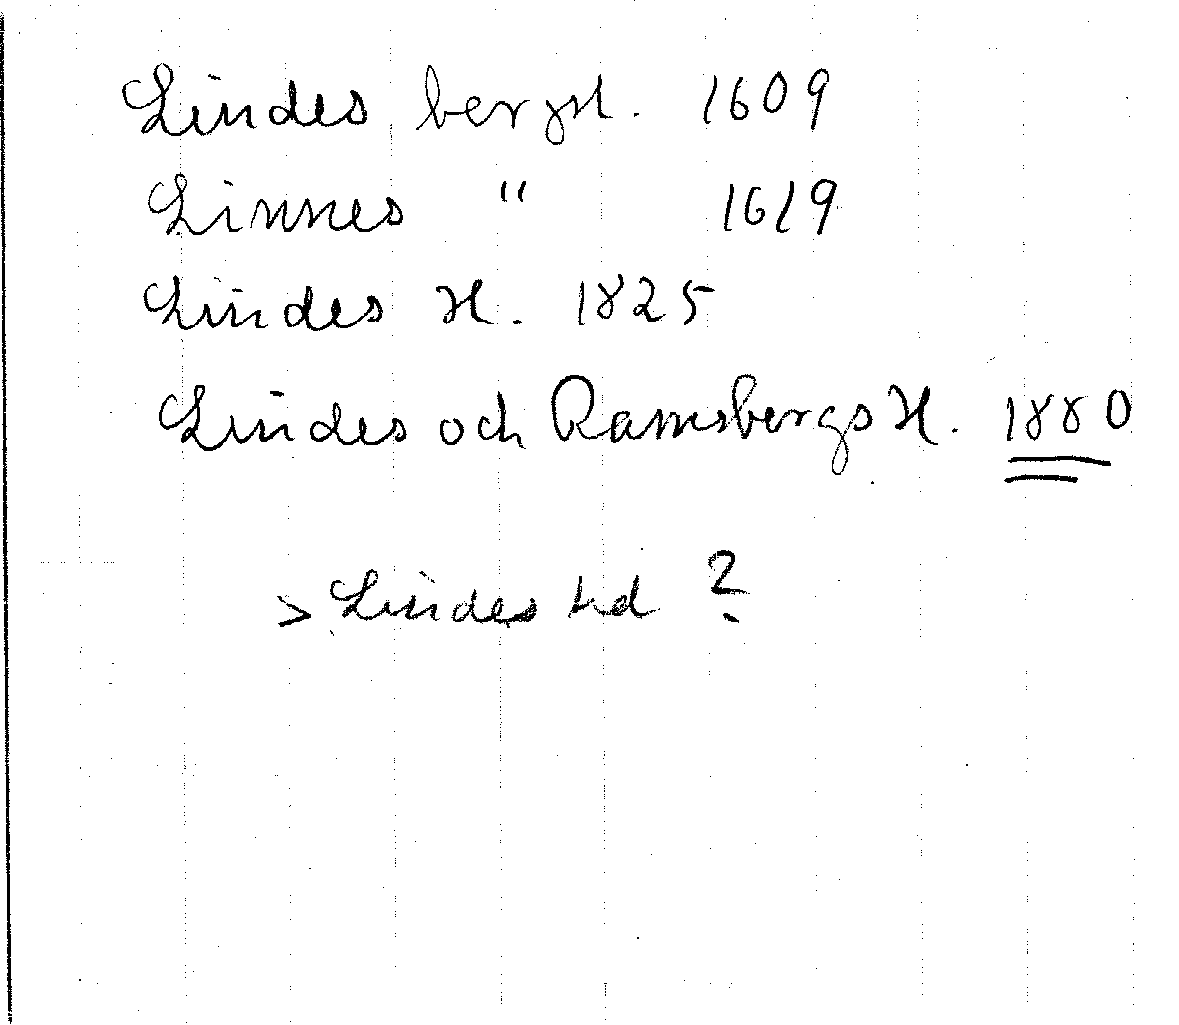 Lindes bergsl. 1609
Linnes " 1619
Lindes H. 1825
Lindes och Ramsbergs H. 1880
> Lindes hd ?